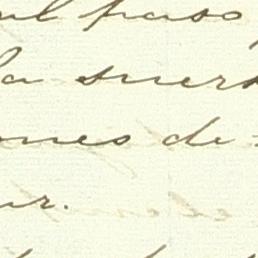 al paso
la suer
ones de-
ar.